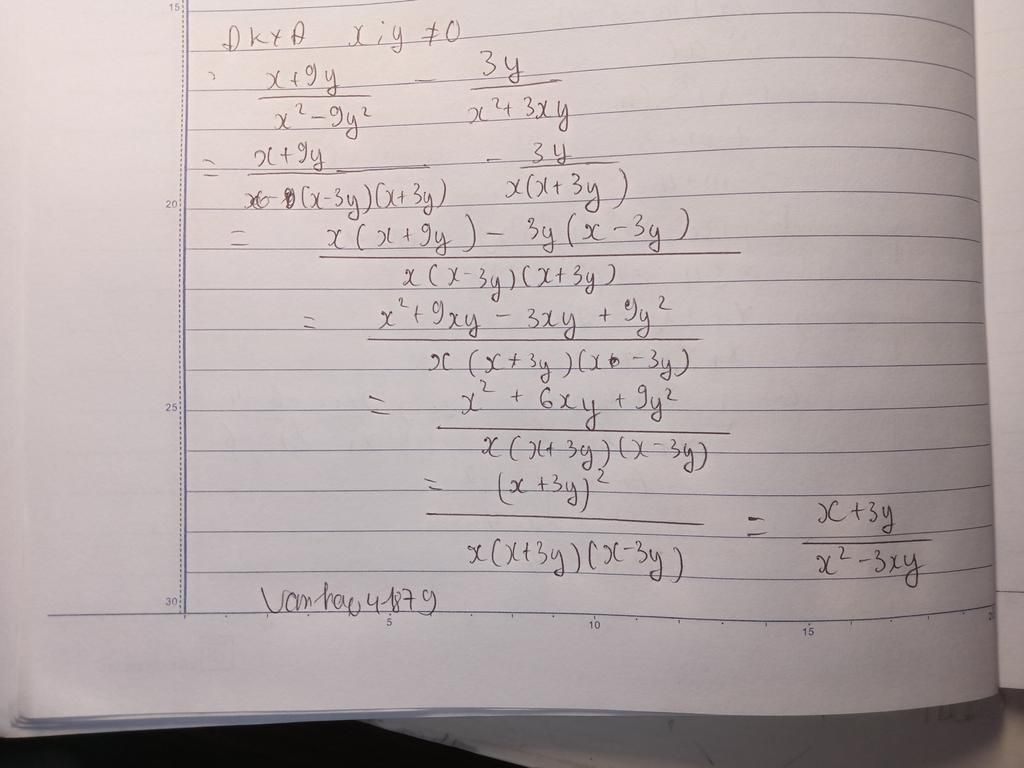 15
ĐKXĐ x; y ≠ 0
\frac{x+9y}{x^2-9y^2} - \frac{3y}{x^2+3xy}
= \frac{x+9y}{(x-3y)(x+3y)} - \frac{3y}{x(x+3y)}
20
= \frac{x(x+9y) - 3y(x-3y)}{x(x-3y)(x+3y)}
= \frac{x^2+9xy-3xy+9y^2}{x(x+3y)(x-3y)}
25
= \frac{x^2+6xy+9y^2}{x(x+3y)(x-3y)}
= \frac{(x+3y)^2}{x(x+3y)(x-3y)} = \frac{x+3y}{x^2-3xy}
30
5 10 15